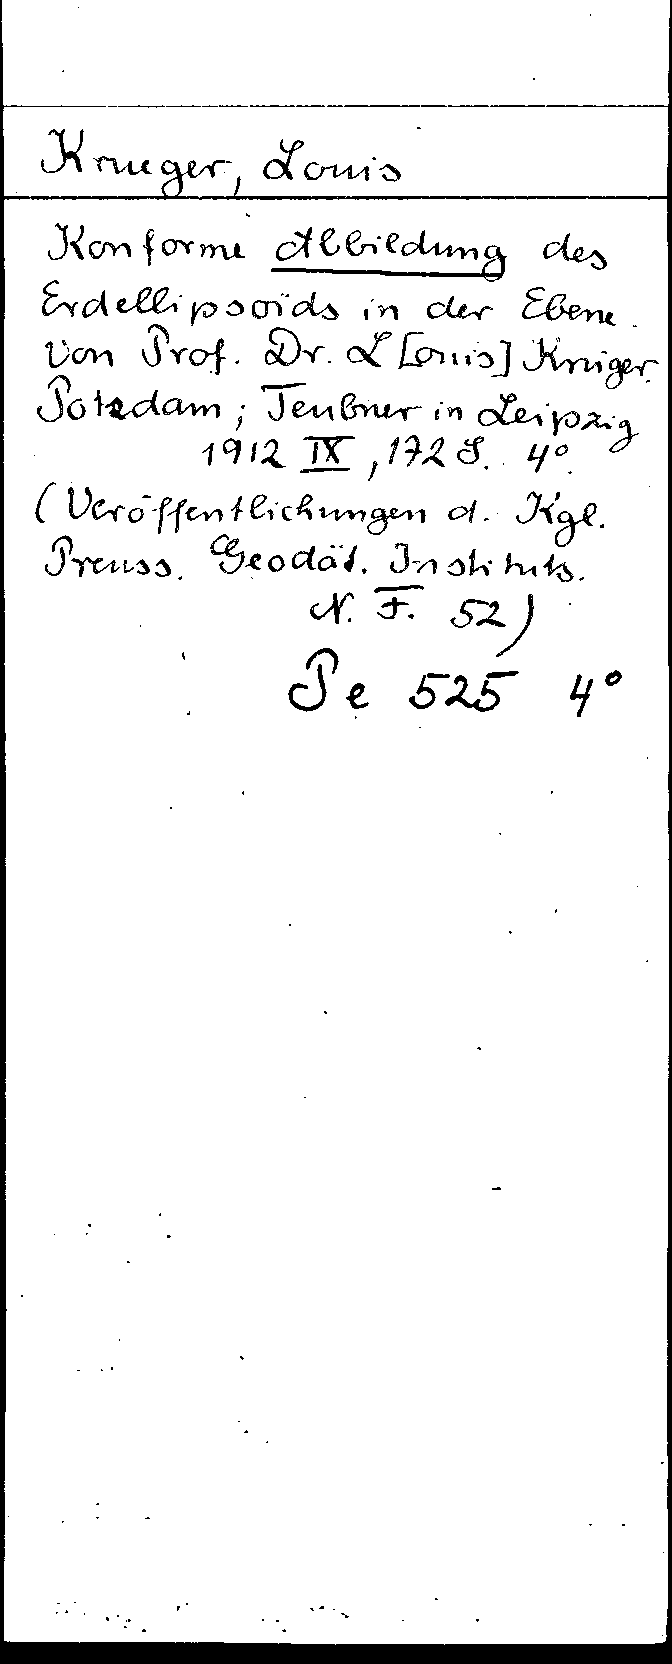 Krueger, Louis
Konforme Abbildung des
Erdellipsoids in der Ebene.
Von Prof. Dr. L[ouis] Krüger.
Potsdam; Teubner in Leipzig
1912 IX, 172 S. 4°.
(Veröffentlichungen d. Kgl.
Preuss. Geodät. Instituts.
N. F. 52)
Pe 525 4°